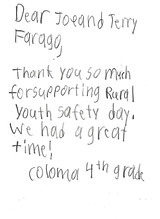 Dear Joeand Jerry
Farago,
Thank you so much
forsupporting Rural
Youth safety day.
We had a great
time!
coloma 4th grade